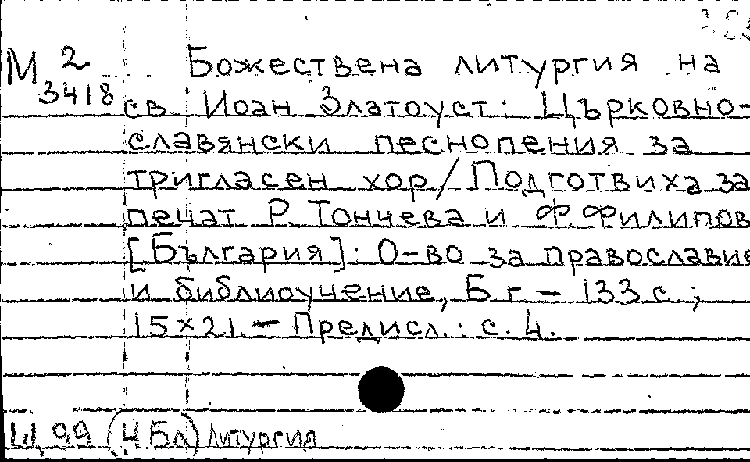 М 2 Божествена литургия на
3418 св. Иоан Златоуст: Църковно-
славянски песнопения за
тригласен хор / Подготвиха за
печат Р. Тончева и Ф. Филипов
[България]: О-во за православие
и библиоучение, Б г. – 133 с.;
15×21. – Предисл.: с. 4.
Щ 99 (4 Бл) Литургия